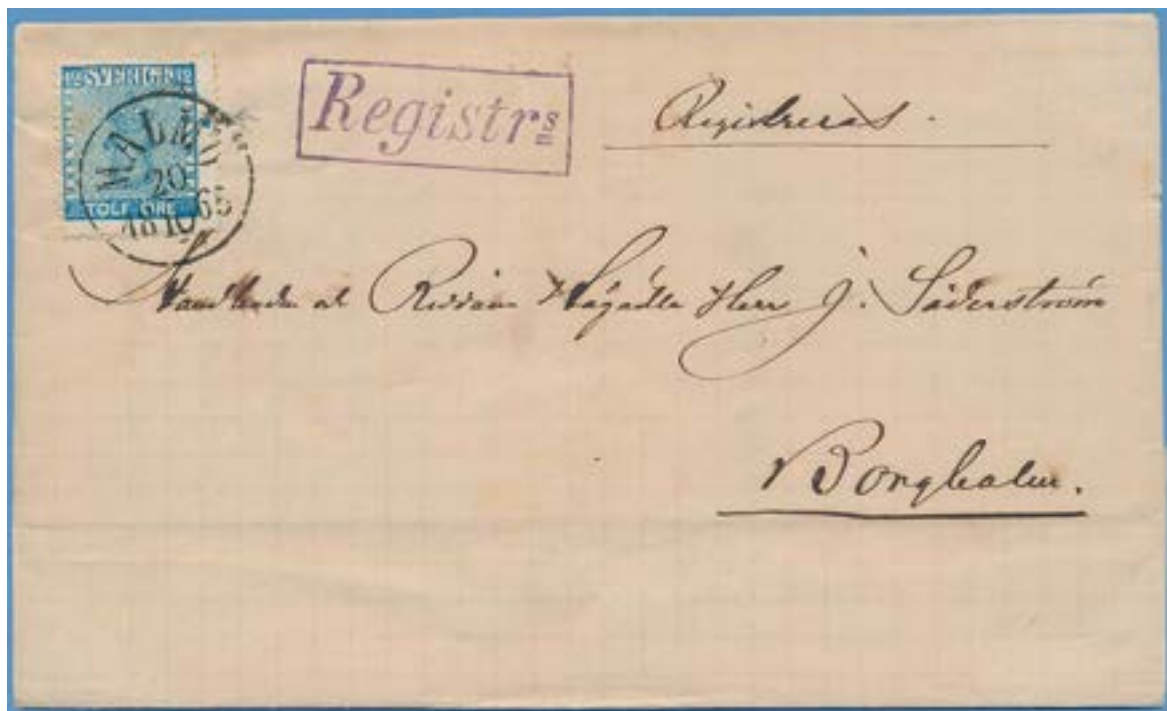 12 SVERIGE 12
TOLF ÖRE
MALMÖ
20
18 10 65
Registrs
Registreras.
Handlanden och Riddaren Herr J. Söderström
Borgholm.